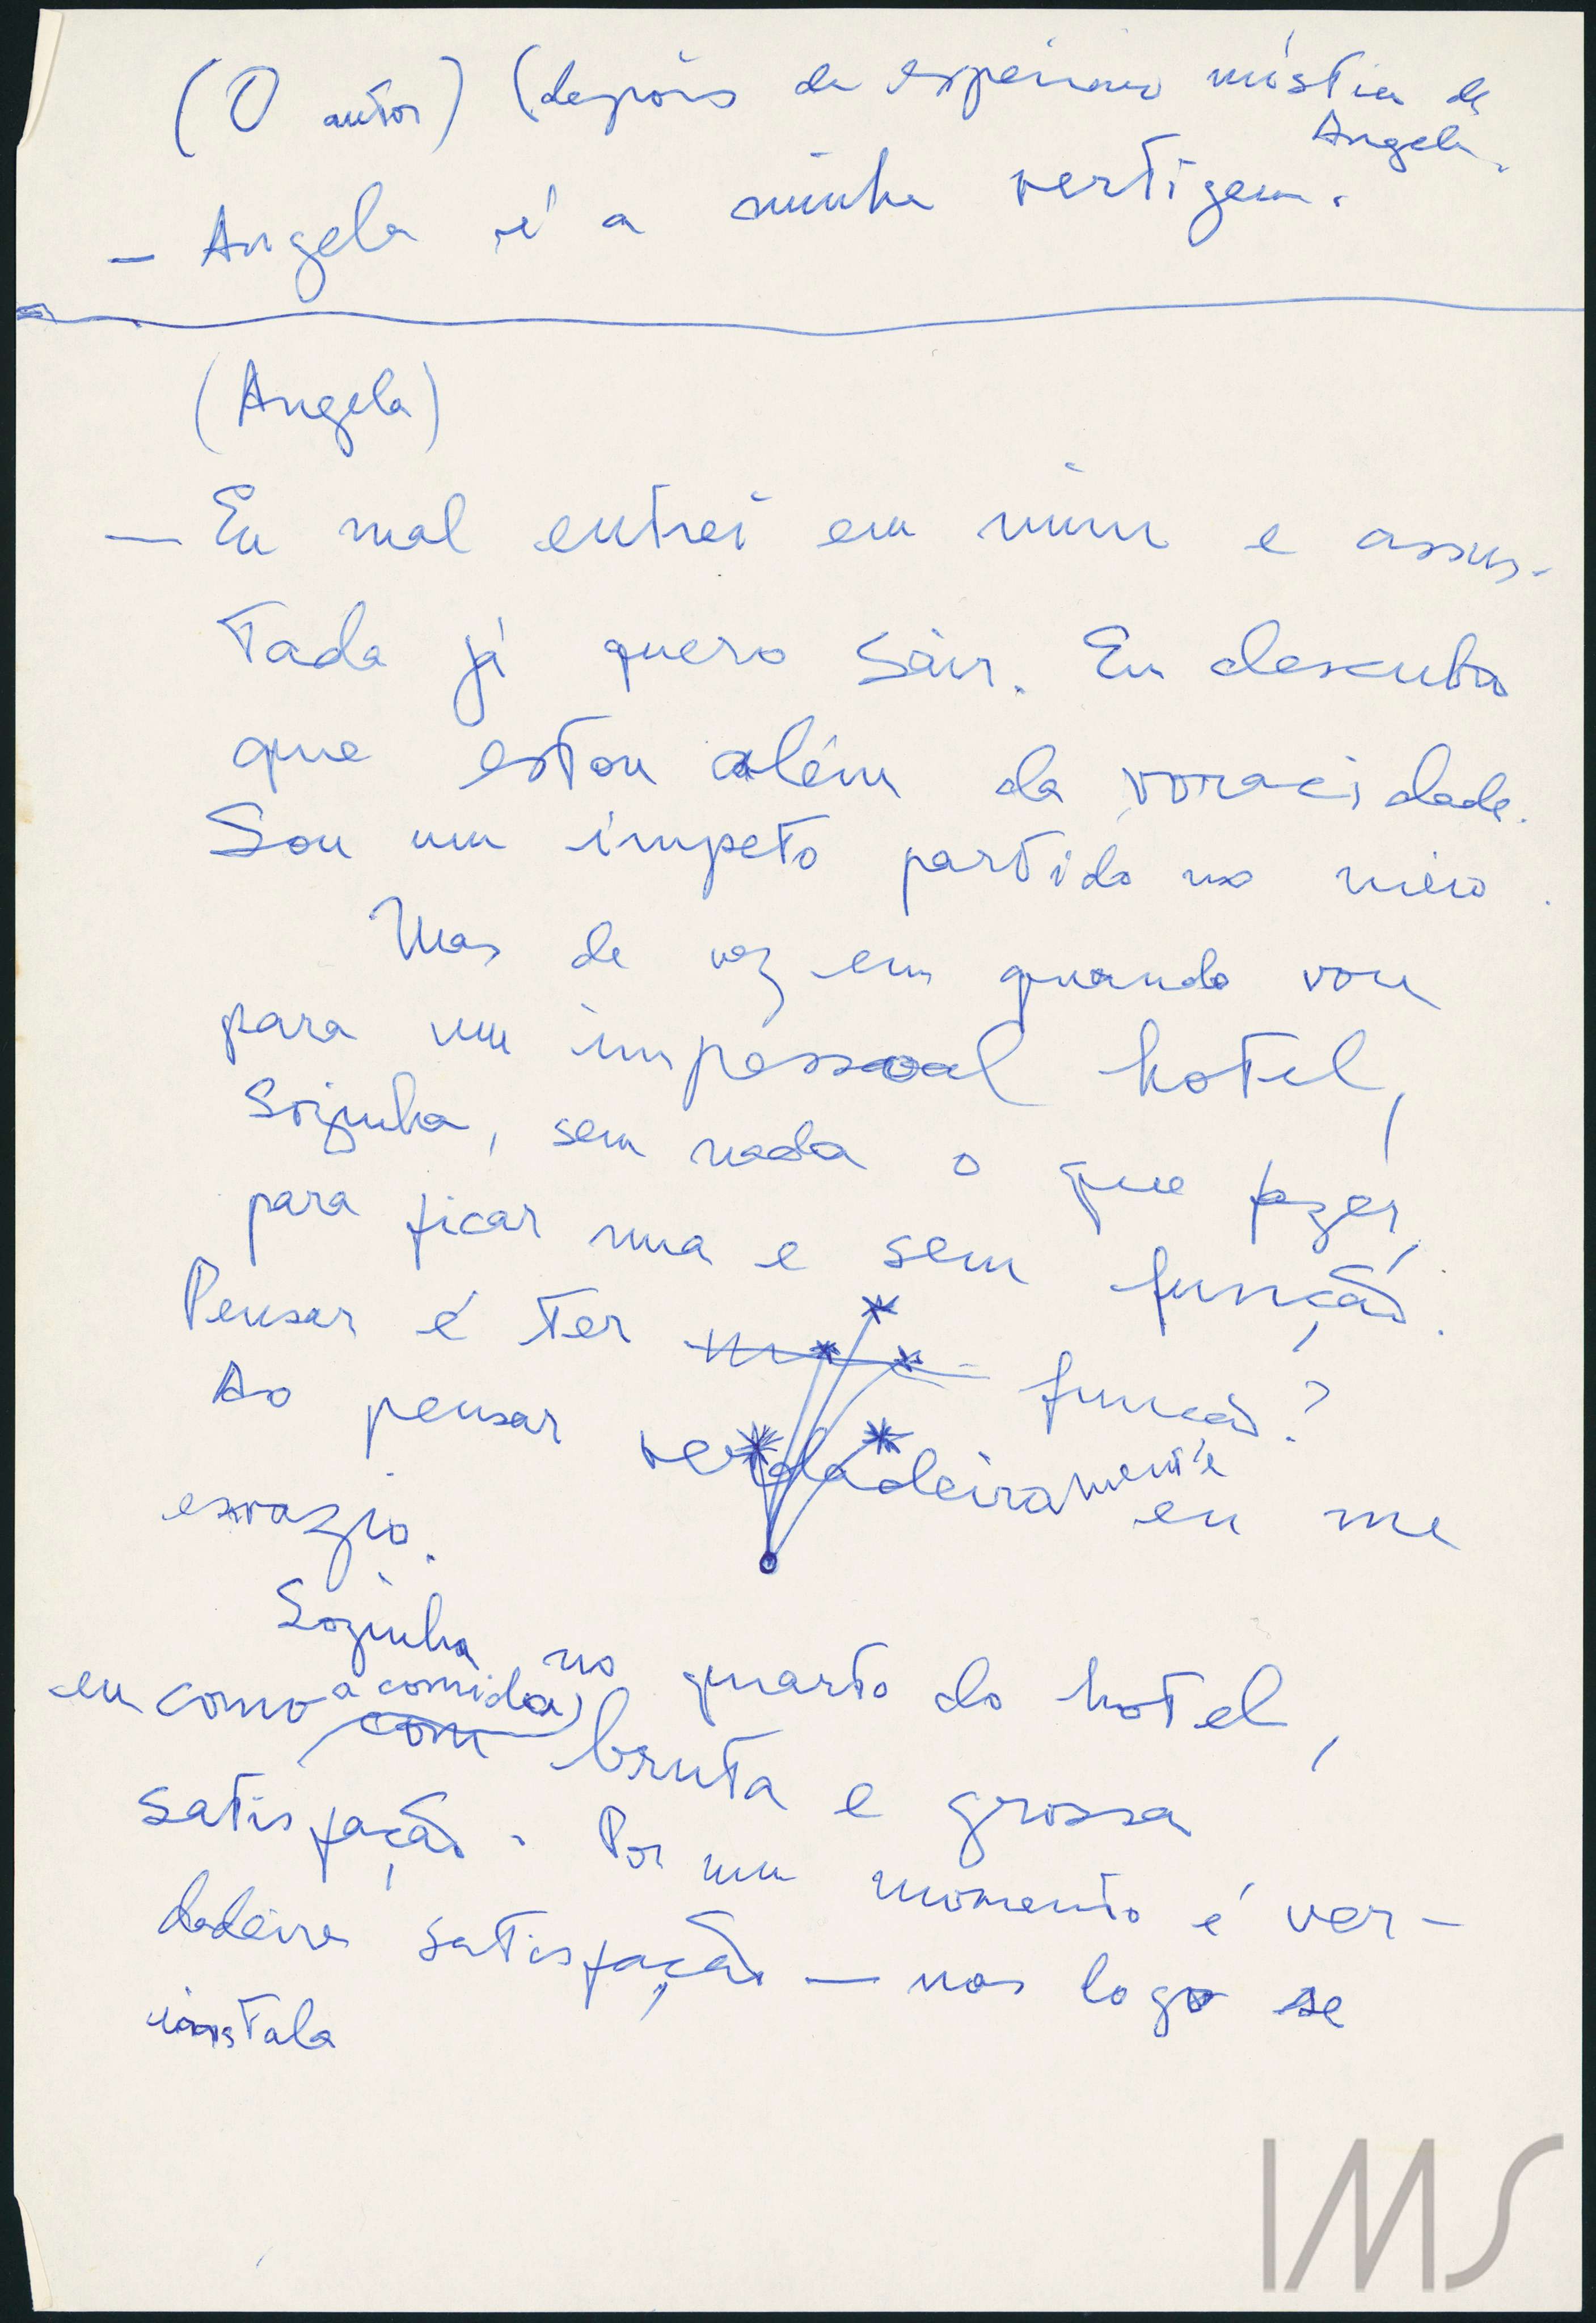 (O autor) (depois da experiencia mística de
Angela.
— Angela é a minha vertigem.
(Angela)
— Eu mal entrei em mim e assus-
tada já quero sair. Eu descubro
que estou além da voracidade.
Sou um ímpeto partido no meio.
Mas de vez em quando vou
para um impessoal hotel,
sozinha, sem nada o que fazer,
para ficar nua e sem função.
Pensar é ter função?
Ao pensar verdadeiramente eu me
esvazio.
Sozinha no quarto do hotel,
eu como a comida com bruta e grossa
satisfação. Por um momento é ver-
dadeira satisfação — mas logo se
instala
IMS